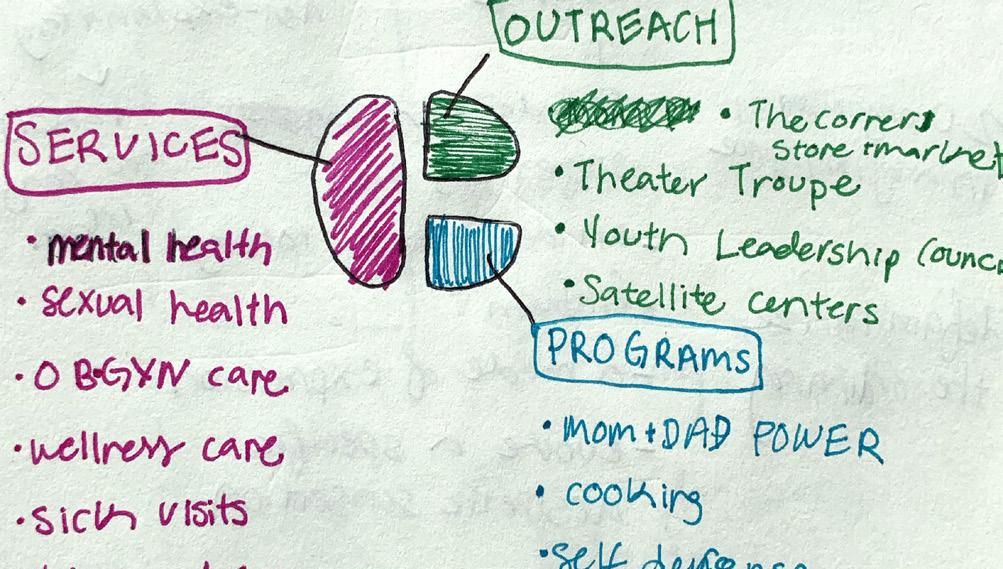 OUTREACH
• The corner
store + market
• Theater Troupe
• Youth Leadership
• Satellite centers
SERVICES
• mental health
• sexual health
• OB-GYN care
• wellness care
• sick visits
PROGRAMS
• mom + DAD POWER
• cooking
• self defense